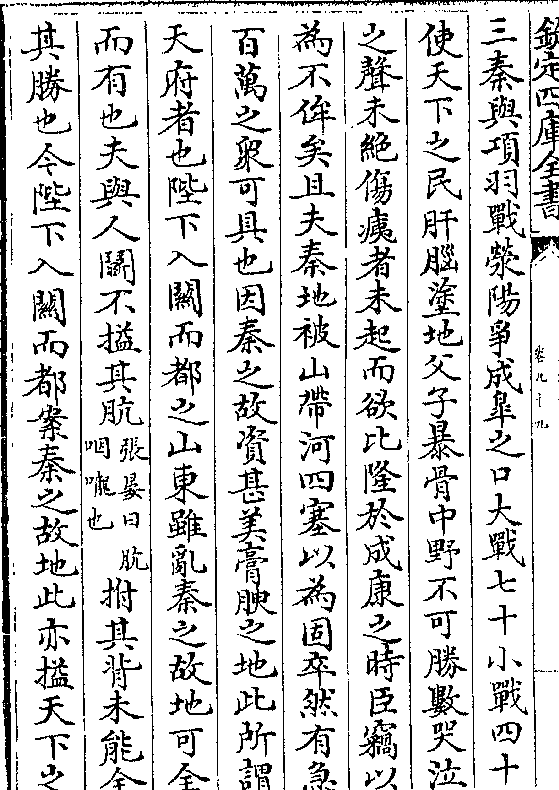 欽定四庫全書
卷九十九
三秦與項羽戰滎陽爭成臯之口大戰七十小戰四十
使天下之民肝腦塗地父子暴骨中野不可勝數哭泣
之聲未絶傷痍者未起而欲比隆於成康之時臣竊以
為不侔矣且夫秦地被山帶河四塞以為固卒然有急
百萬之衆可具也因秦之故資甚美膏腴之地此所謂
天府者也陛下入關而都之山東雖亂秦之故地可全
而有也夫與人鬭不搤其肮張晏曰肮咽嚨也拊其背未能全
其勝也今陛下入關而都案秦之故地此亦搤天下之